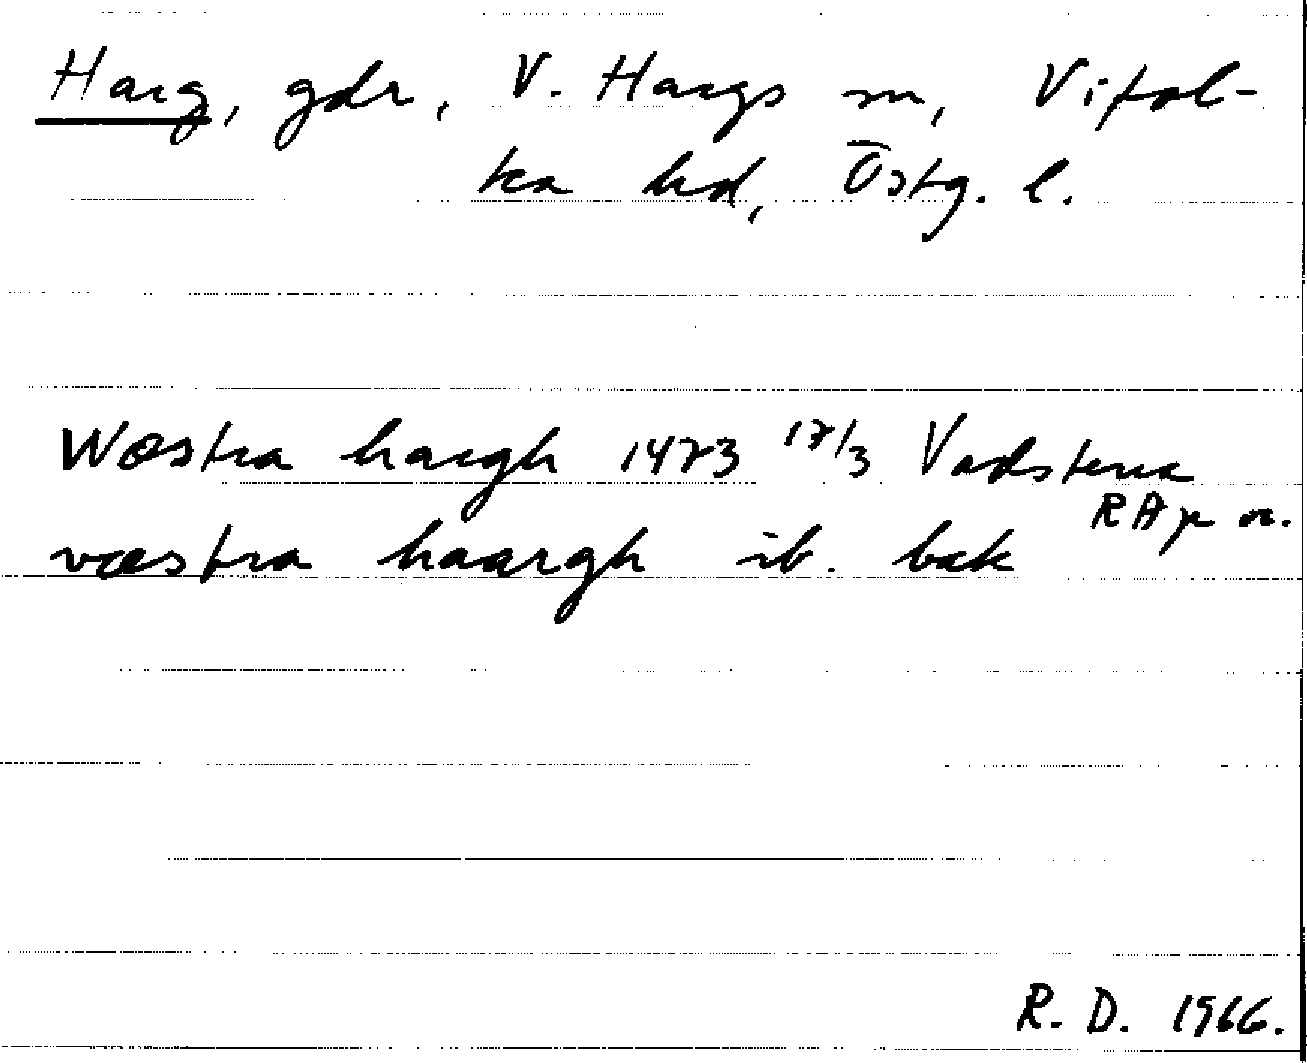 Harg, gdr, V. Hargs sn, Vifol-
ka hd, Östg. l.
Wæstra hargh 1423 17/3 Vadstena
RAp or.
væstra haargh ib. bak
R. D. 1966.